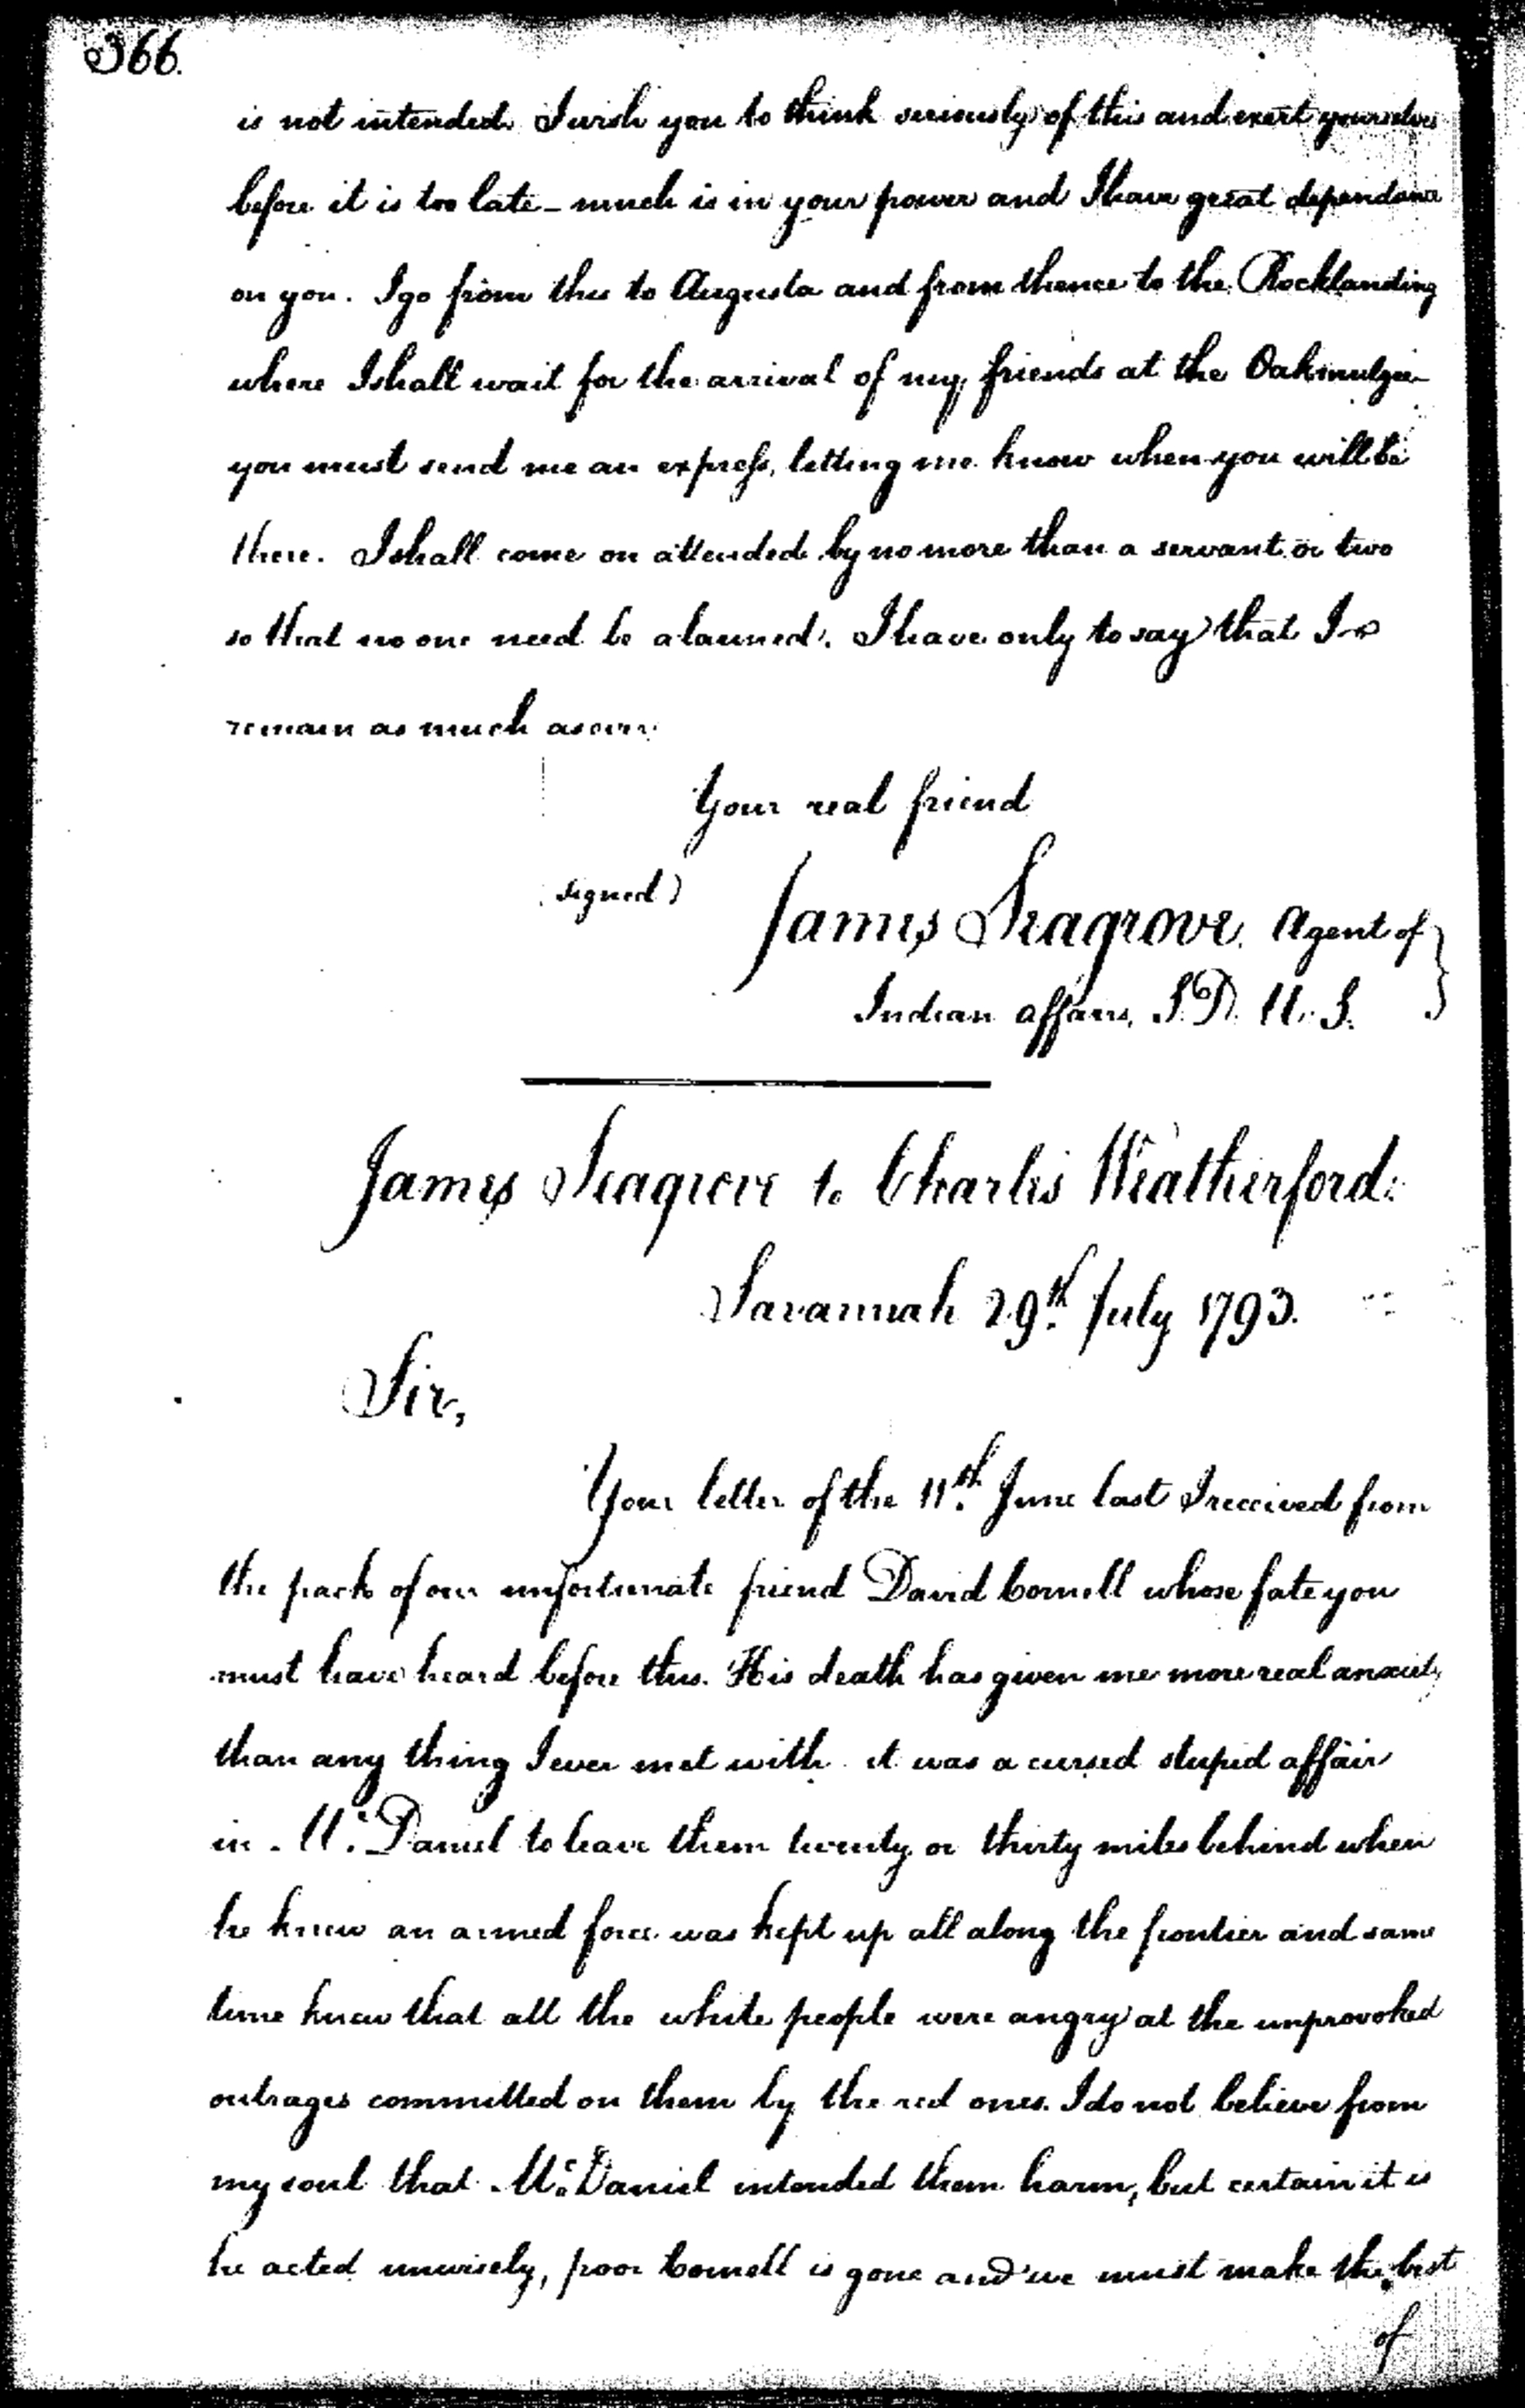 366.
is not intended. I wish you to think seriously of this and exert yourselves
before it is too late - much is in your power and I have great dependance
on you. I go from this to Augusta and from thence to the Rocklanding
where I shall wait for the arrival of my friends at the Oakmulgee
you must send me an express, letting me know when you will be
there. I shall come on attended by no more than a servant or two
so that no one need be alarmed. I have only to say that I
remain as much as ever
Your real friend
signed)
James Seagrove. Agent of
Indian affairs, S.D. U. S.
James Seagrove to Charles Weatherford.
Savannah 29th. July 1793.
Sir,
Your letter of the 11th. June last I received from
the pack of our unfortunate friend David Cornell whose fate you
must have heard before this. His death has given me more real anxiety
than any thing I ever met with. it was a cursed stupid affair
in Mc. Daniel to leave them twenty or thirty miles behind when
he knew an armed force was kept up all along the frontier and same
time knew that all the white people were angry at the unprovoked
outrages committed on them by the red ones. I do not believe from
my soul that Mc. Daniel intended them harm, but certain it is
he acted unwisely, poor Cornell is gone and we must make the best
of